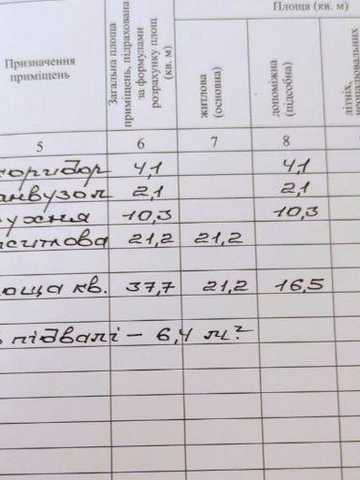 Площа (кв. м)
Призначення
приміщень
Загальна площа
приміщень, підрахована
за формулами
розрахунку площ
(кв. м)
житлова
(основна)
допоміжна
(підсобна)
літніх,
5 6 7 8
оридор 4,1 4,1
анвузол 2,1 2,1
ухня 10,3 10,3
итлова 21,2 21,2
оща кв. 37,7 21,2 16,5
підвалі – 6,4 м²